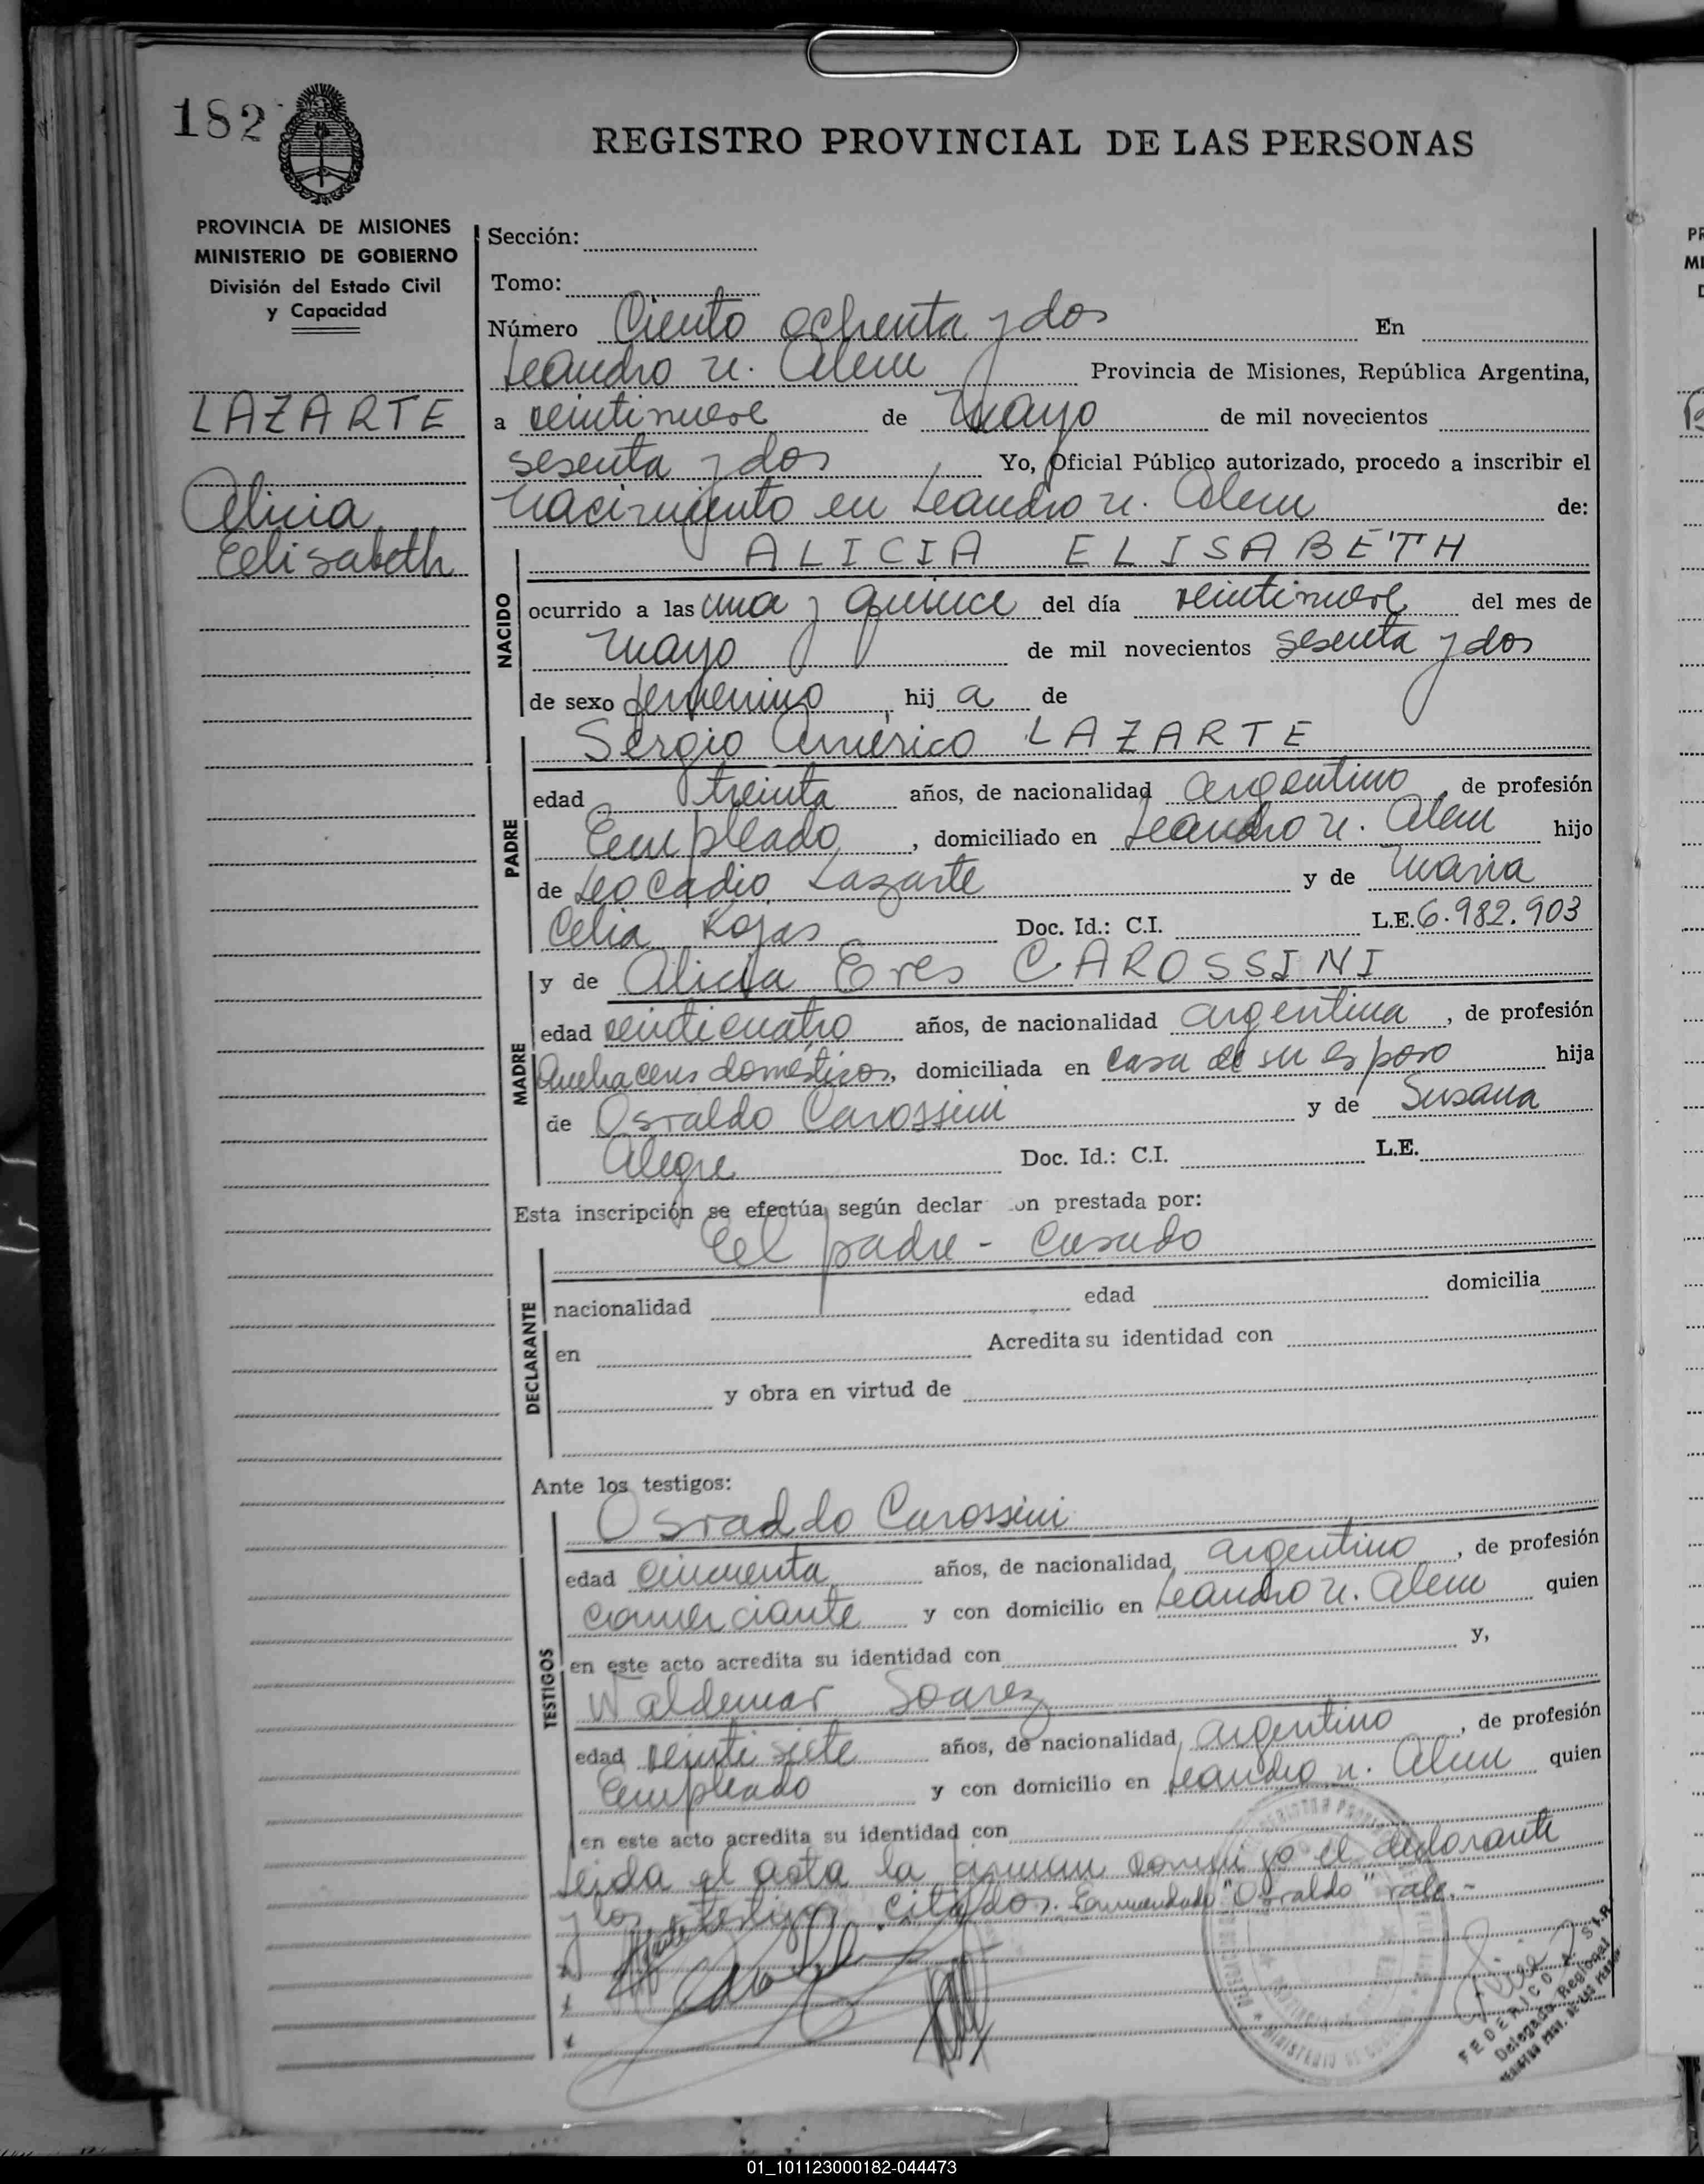 182
REGISTRO PROVINCIAL DE LAS PERSONAS
PROVINCIA DE MISIONES
MINISTERIO DE GOBIERNO
División del Estado Civil
y Capacidad
LAZARTE
Alicia
Elisabeth
Sección:
Tomo:
Número Ciento ochenta y dos En
Leandro N. Alem Provincia de Misiones, República Argentina,
a veintinueve de Mayo de mil novecientos
sesenta y dos, Yo, Oficial Público autorizado, procedo a inscribir el
nacimiento en Leandro N. Alem de:
NACIDO
ALICIA ELISABETH
ocurrido a las una y quince del día veintinueve del mes de
Mayo de mil novecientos sesenta y dos
de sexo femenino, hija de
PADRE
Sergio Américo LAZARTE
edad treinta años, de nacionalidad argentino, de profesión
Empleado, domiciliado en Leandro N. Alem hijo
de Leocadio Lazarte y de Maria
Celia Rojas Doc. Id.: C.I. L.E. 6.982.903
MADRE
y de Alicia Eves CAROSSINI
edad veinticuatro años, de nacionalidad argentina, de profesión
Quehaceres domésticos, domiciliada en casa de su esposo hija
de Osvaldo Carossini y de Susana
Alegre Doc. Id.: C.I. L.E.
Esta inscripción se efectúa según declar on prestada por:
El padre - Casado
DECLARANTE
nacionalidad edad domicilia
en Acredita su identidad con
y obra en virtud de
Ante los testigos:
TESTIGOS
Osvaldo Carossini
edad cincuenta años, de nacionalidad argentino, de profesión
comerciante y con domicilio en Leandro N. Alem quien
en este acto acredita su identidad con y,
Waldemar Soarez
edad veintisiete años, de nacionalidad argentino, de profesión
Empleado y con domicilio en Leandro N. Alem quien
en este acto acredita su identidad con
Leida el acta la firman conmigo el declarante
y los testigos citados. Enmendado "Osvaldo" vale.-
FEDERICO A.
Delegado Regional
01_101123000182-044473